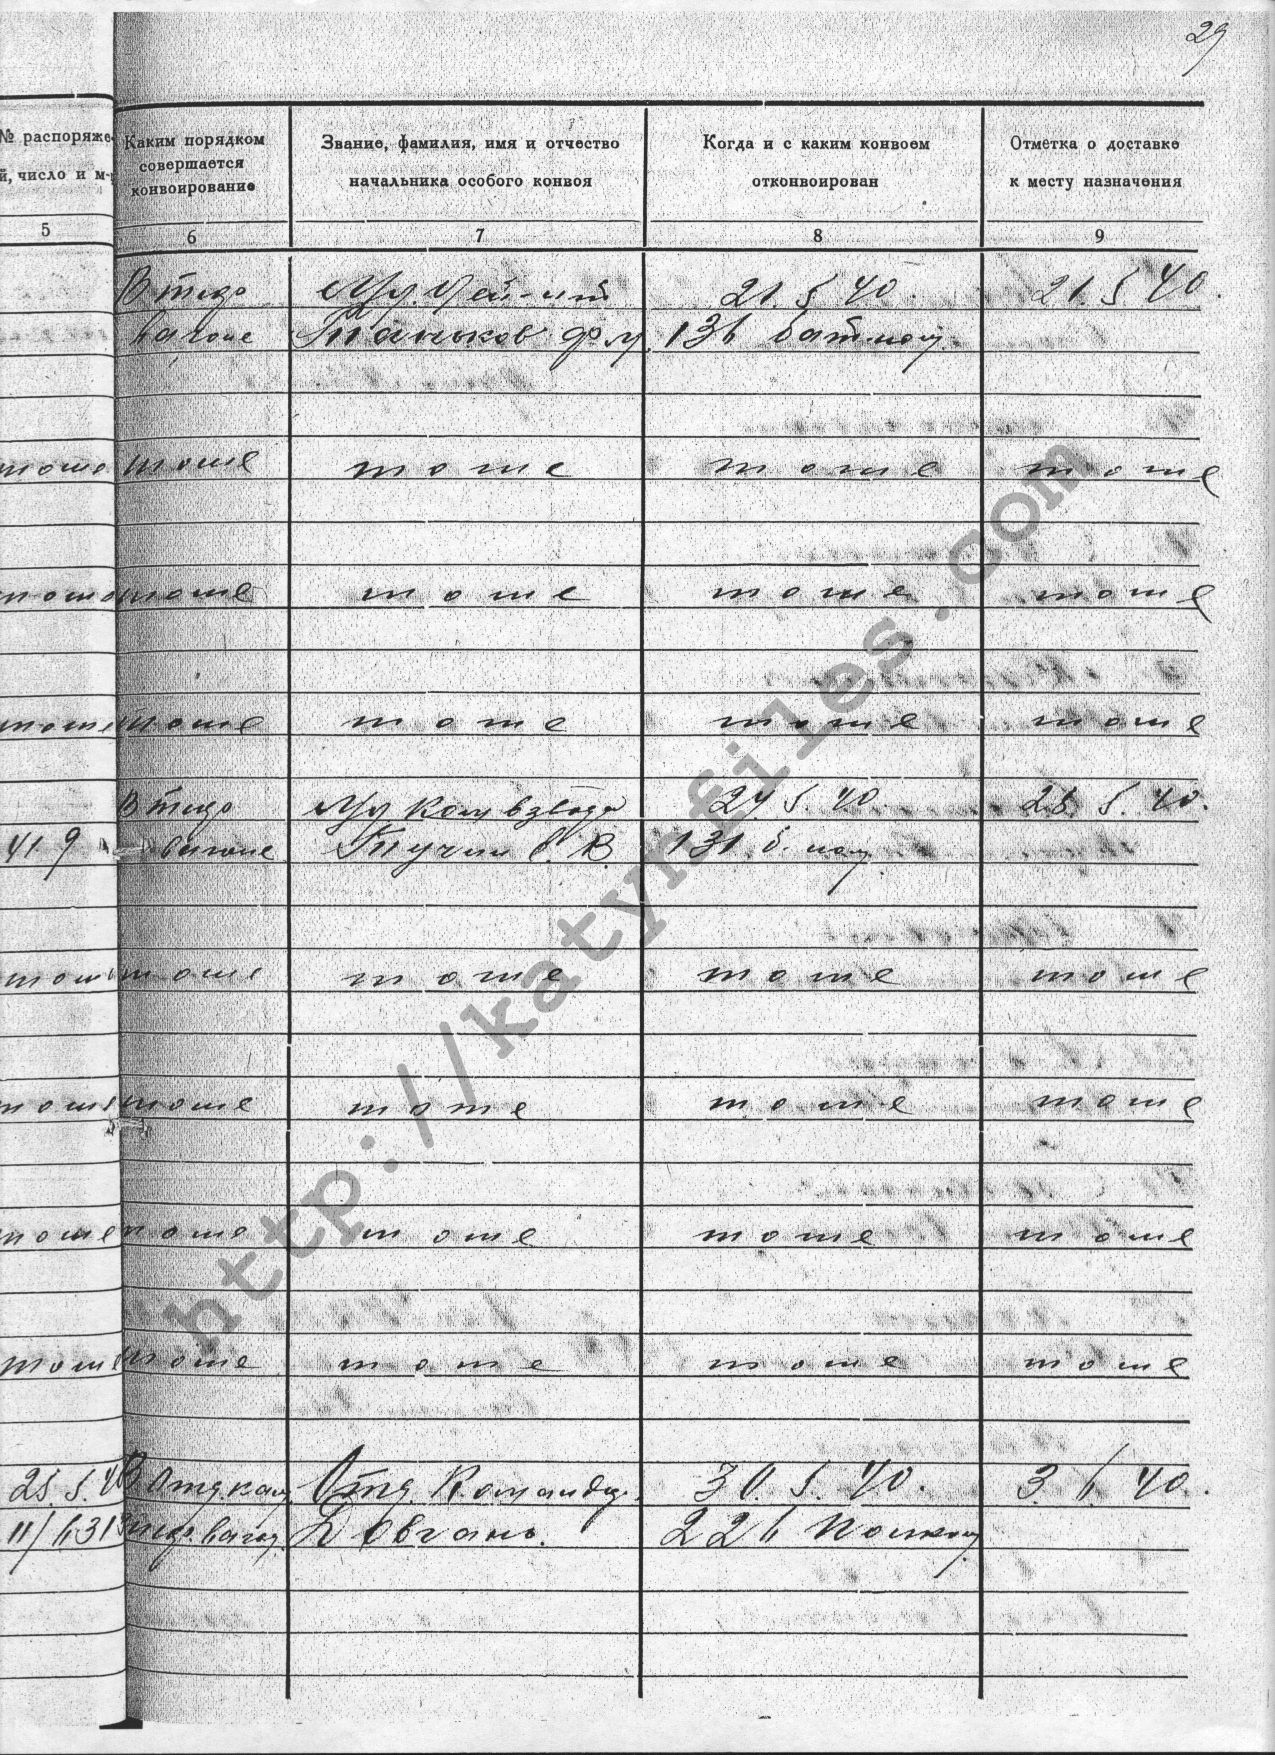 29
№ распоряже-
й, число и м-
Каким порядком
совершается
конвоирование
Звание, фамилия, имя и отчество
начальника особого конвоя
Когда и с каким конвоем
отконвоирован
Отметка о доставке
к месту назначения
5 6 7 8 9
В тюро 21. 5 40. 21. 5 40.
вагоне Таньков 136 батном.
тоже тоже тоже тоже тоже
тоже тоже тоже тоже тоже
тоже тоже тоже тоже тоже
В тюро Мл Ком взвода 24 5. 40. 28 5. 40.
41 9 вагоне 131 б. ном.
тоже тоже тоже тоже тоже
тоже тоже тоже тоже тоже
тоже тоже тоже тоже тоже
тоже тоже тоже тоже тоже
25. 5. 40 В Отд. кам. Отд. Команды. 30. 5. 40. 3. 6. 40.
вагоне. Довгань. 226 Полком
http://katynfiles.com